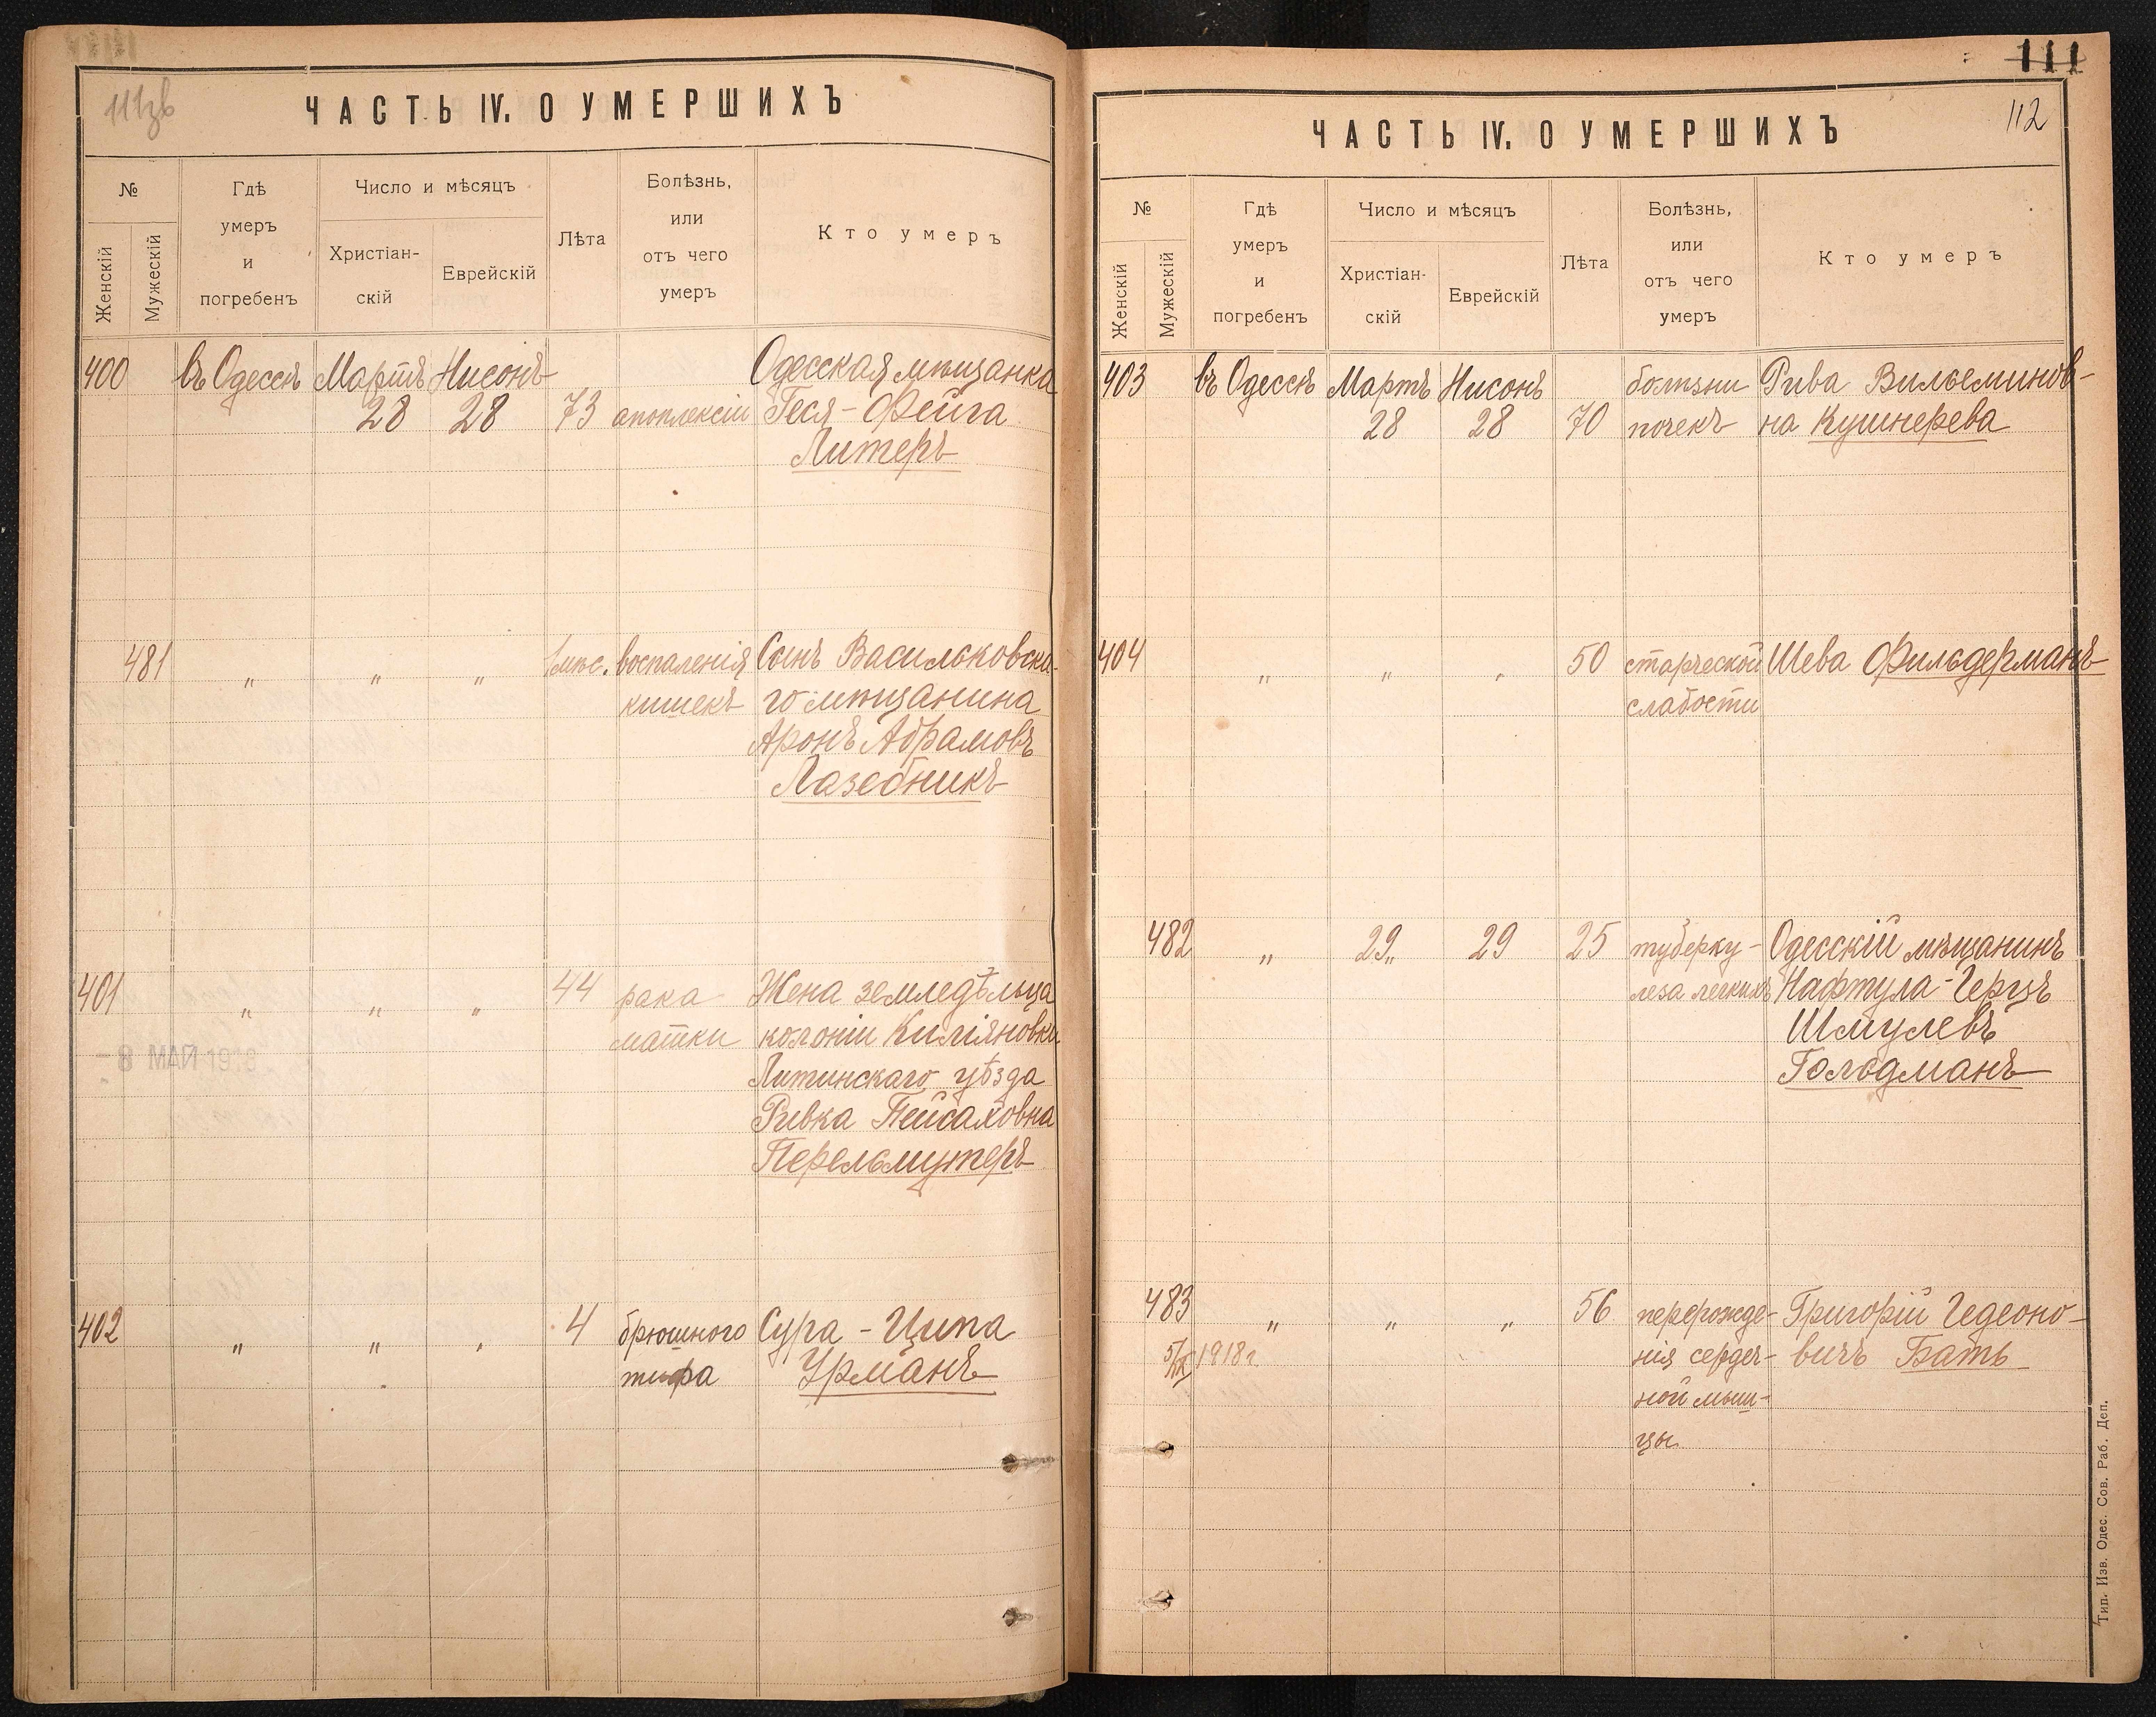 111зв
ЧАСТЬ IV. О УМЕРШИХЪ
№
Женскій
Мужескій
Гдѣ
умеръ
и
погребенъ
Число и мѣсяцъ
Христіан-
скій
Еврейскій
Лѣта
Болѣзнь,
или
отъ чего
умеръ
Кто умеръ
400 въ Одессѣ Мартъ Нисонъ Одесская мѣщанка
28 28 73 апоплексіи Геся-Фейга
Литеръ
481 " " " 1 мѣс. воспаленія Сынъ Васильковска-
кишекъ го мѣщанина
Аронъ Абрамовъ
Лазебникъ
401 " " " 44 рака Жена земледѣльца
матки колоніи Киліяновка
Литинскаго уѣзда
Ривка Пейсаховна
Перельмутеръ
402 " " " 4 брюшного Сура-Ципа
тифа Урманъ
111
112
ЧАСТЬ IV. О УМЕРШИХЪ
№
Женскій
Мужескій
Гдѣ
умеръ
и
погребенъ
Число и мѣсяцъ
Христіан-
скій
Еврейскій
Лѣта
Болѣзнь,
или
отъ чего
умеръ
Кто умеръ
403 въ Одессѣ Мартъ Нисонъ болѣзни Рива Вильеминов-
28 28 70 почекъ на Кушнерева
404 " " " 50 старческой Шева Фильдерманъ
слабости
482 " 29 29 25 туберку- Одесскій мѣщанинъ
леза легкихъ Нафтула-Герцъ
Шмулевъ
Гольдманъ
483 " " " 56 перерожде- Григорій Гедеоно-
1918 г. нія сердеч- вичъ Бать
ной мыш-
цы
Тип. Изв. Одес. Сов. Раб. Деп.